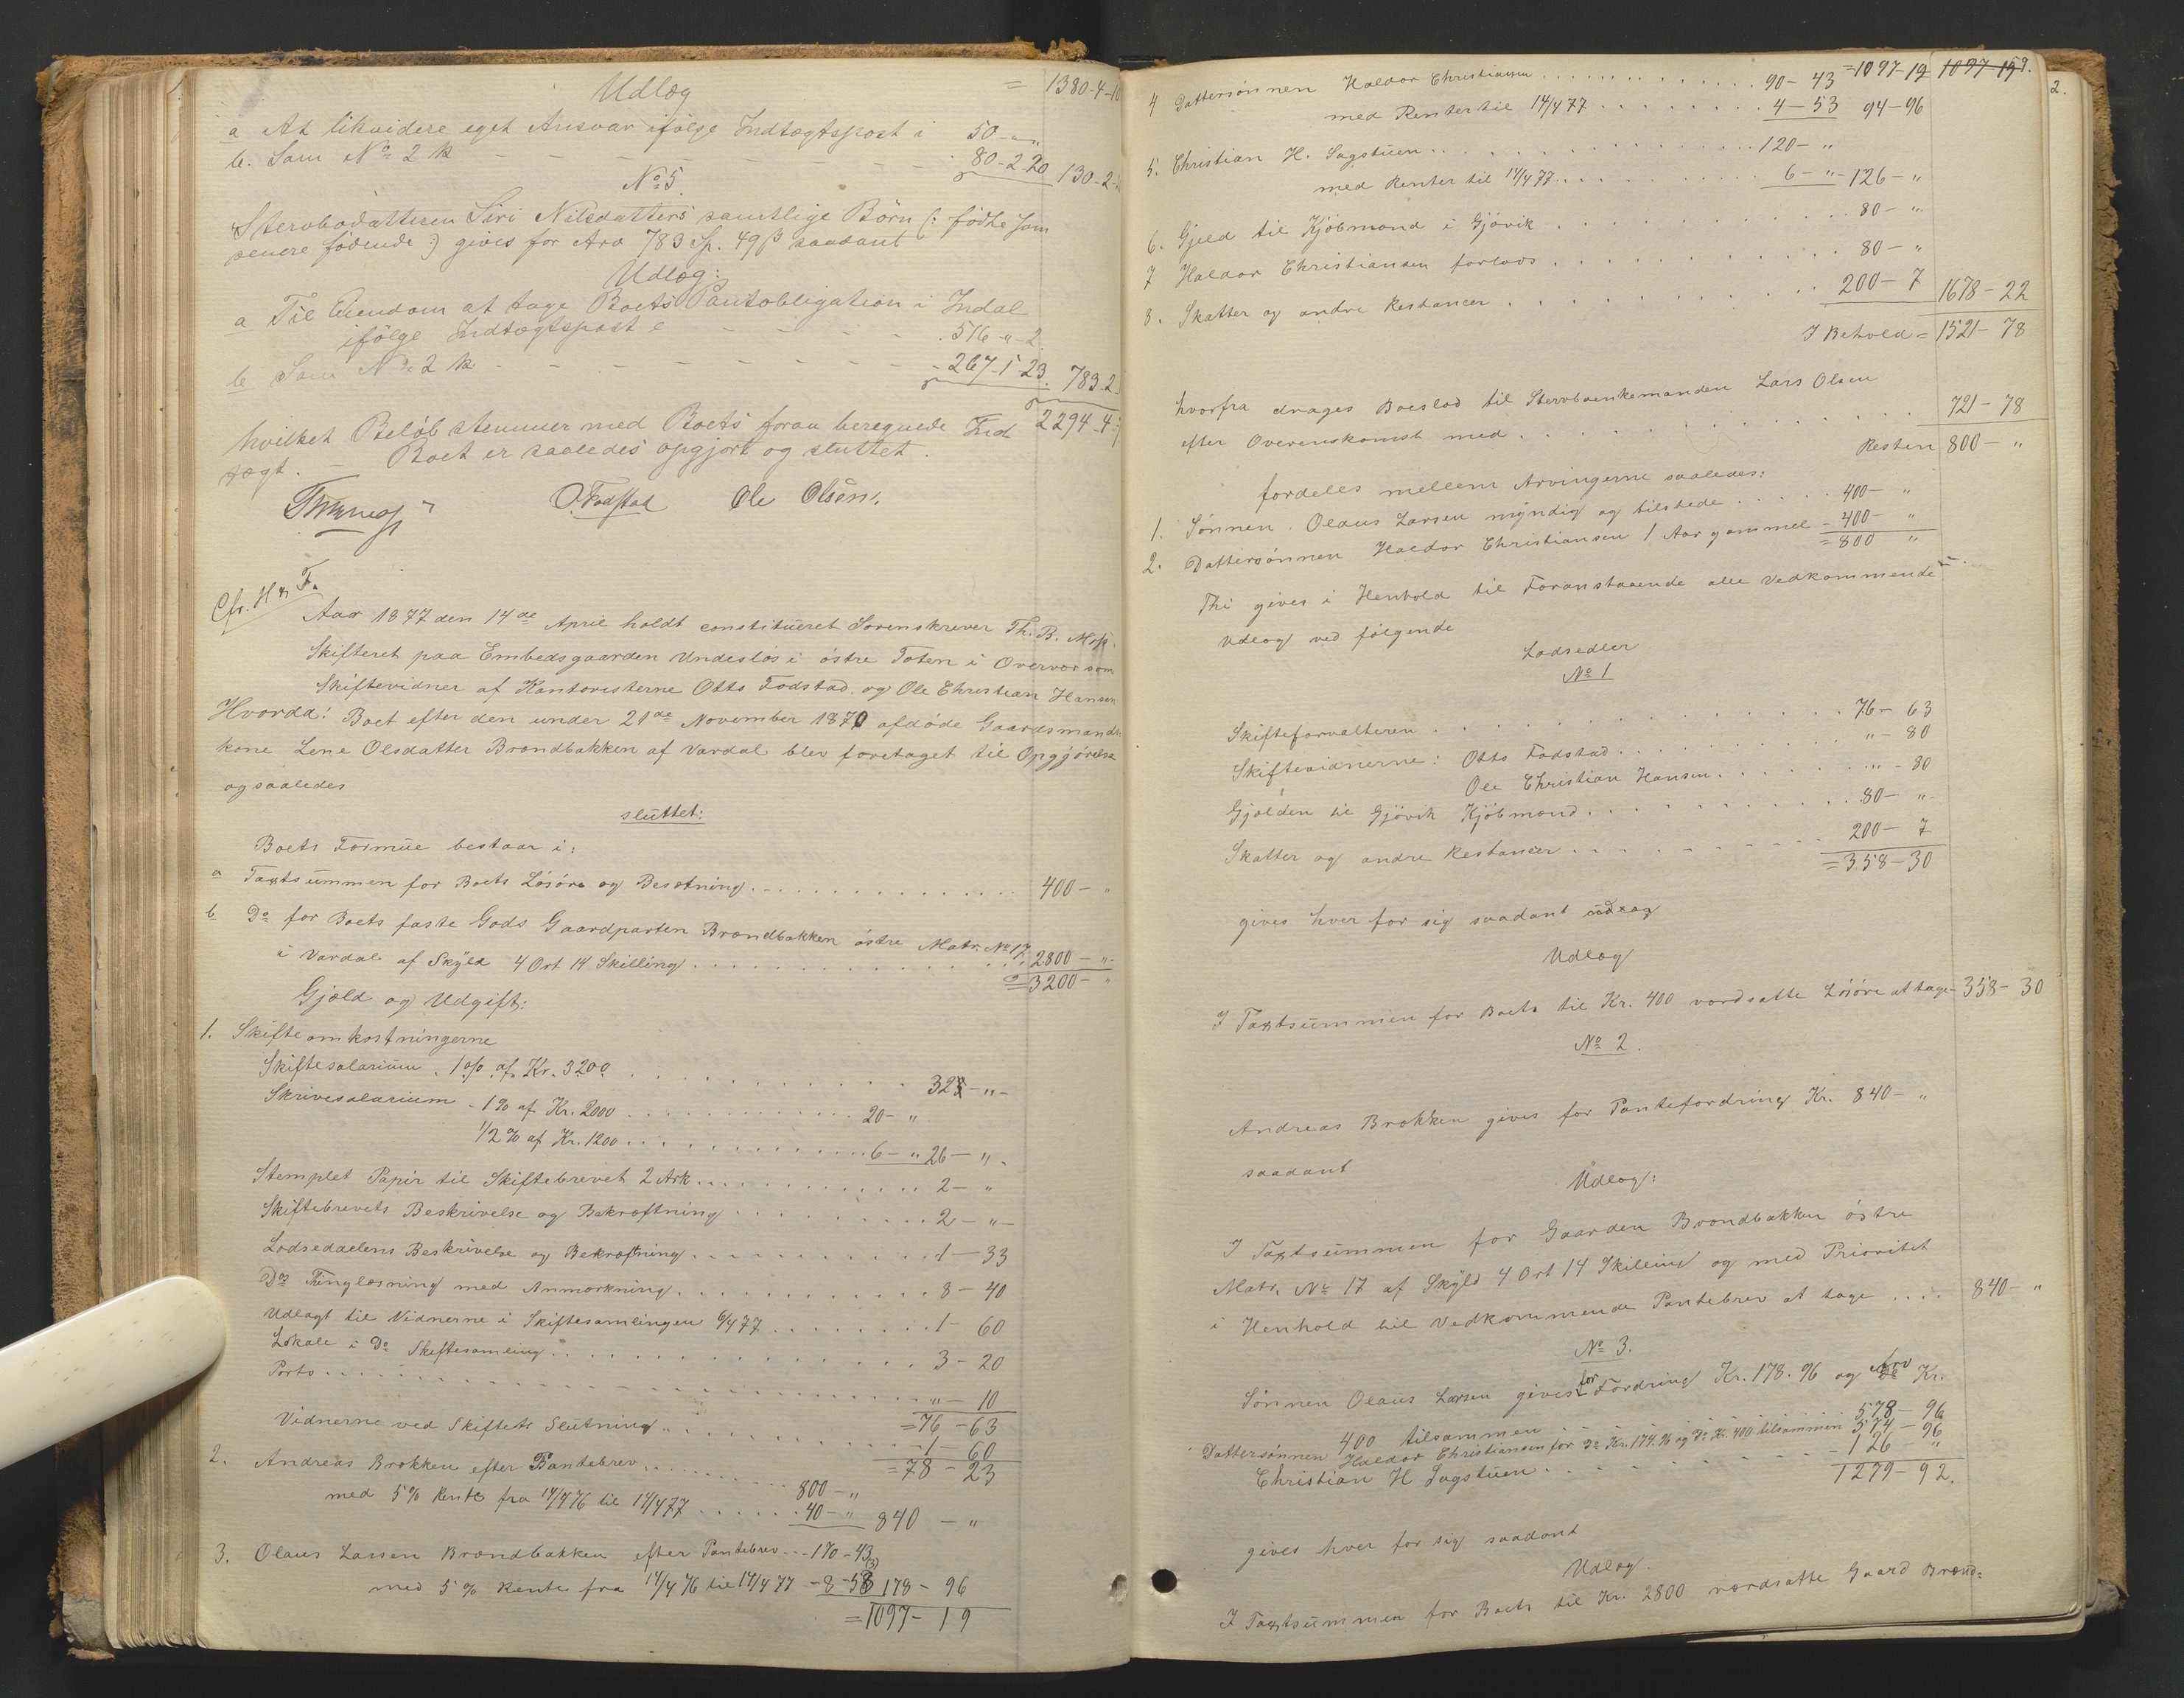 Udlæg = 1380-4-10
a At likvidere eget Ansvar ifølge Indtægtspost i 50 - "
b. Som No 2 k - - - 80-2-20 130-2-
No 5.
Stervbodatteren Siri Nilsdatters samtlige Börn (: fødte som
senere fødende :) gives for Arv 783 Sp. 49 ß saadant
Udlæg:
a Til Eiendom at tage Boets Pantobligation i Indal
ifølge Indtægtspost e - - - 516 - " - 2
b Som No 2 k - - - 267-1-23. 783 2
2294-4-
hvilket Beløb stemmer med Boets foran beregnede Ind
tægt. - Boet er saaledes opgjort og sluttet.
O. Fodstad Ole Olsen.
Cfr. H & F.
Aar 1877 den 14de April holdt constitueret Sorenskriver Th. B. Moss
Skifteret paa Embedsgaarden Undeslös i östre Toten i Overvær som
Skiftevidner af Kontoristerne Otto Fodstad og Ole Christian Hansen
Hvorda: Boet efter den under 21de November 1870 afdøde Gaardsmands
kone Lene Olsdatter Brændbakken af Vardal blev foretaget til Opgjørelse
og saaledes
sluttet:
Boets Formue bestaar i:
a Taxtsummen for Boets Løsøre og Besætning . . . 400 - "
b Do for Boets faste Gods Gaardparten Brændbakken östre Matr. No 17
i Vardal af Skyld 4 Ort 14 Skilling . . . 2800 - " -
= 3200 - "
Gjæld og Udgift:
1. Skifteomkostningerne
Skiftesalarium . 1 % af Kr. 3200 . . . 32 - " -
Skrivesalarium - 1 % af Kr. 2000 . . . 20 - "
1/2 % af Kr. 1200 . . . 6 - " 26 - " -
Stemplet Papir til Skiftebrevet 2 Ark . . . 2 - "
Skiftebrevets Beskrivelse og Bekræftning . . . 2 - " -
Lodseddelens Beskrivelse og Bekræftning . . . 1 - 33
Do Thinglæsning med Anmærkning . . . 8 - 40
Udlagt til Vidnerne i Skiftesamlingen 6/4 77 . . . 1 - 60
Lokale i Do Skiftesamling . . . 3 - 20
Porto . . . " - 10
= 76 - 63
Vidnerne ved Skiftets Slutning . . . 1 - 60
= 78 - 23
2. Andreas Brokken efter Pantebrev . . . 800 - "
med 5 % Rente fra 14/4 76 til 14/4 77 . . . 40 - " 840 - "
3. Olaus Larsen Brændbakken efter Pantebrev . . . 170 - 43
med 5 % Rente fra 14/4 76 til 14/4 77 - 8 - 53 178 - 96
= 1097 - 19
= 1097 - 19 1097 - 19.
2.
4 Dattersønnen Haldor Christiansen . . . 90 - 43
med Renter til 14/4 77 . . . 4 - 53 94 - 96
5. Christian H. Sagstuen . . . 120 - "
med Renter til 14/4 77 . . . 6 - " - 126 - "
6. Gjæld til Kjøbmænd i Gjøvik . . . 80 - "
7 Haldor Christiansen forlods . . . 80 - "
8. Skatter og andre Restancer . . . 200 - 7 1678 - 22
I Behold = 1521 - 78
hvorfra drages Boeslod til Stervboenkemanden Lars Olsen
efter Overenskomst med . . . 721 - 78
Resten 800 - "
fordeles mellem Arvingerne saaledes:
1. Sønnen Olaus Larsen myndig og tilstede . . . 400 - "
2. Dattersønnen Haldor Christiansen 1 Aar gammel - 400 - "
= 800 "
Thi gives i Henhold til Foranstaaende alle Vedkommende
Udlæg ved følgende
Lodsedler
No 1
Skifteforvalteren . . . 76 - 63
Skiftevidnerne: Otto Fodstad . . . " - 80
Ole Christian Hansen . . . " - 80
Gjælden til Gjøvik Kjøbmænd . . . 80 - " -
Skatter og andre Restancer . . . 200 - 7
= 358 - 30
gives hver for sig saadant udlæg
Udlæg
I Taxtsummen for Boets til Kr. 400 værdsatte Løsøre at tage - 358 - 30
No 2.
Andreas Brokken gives for Pantefordring Kr. 840 - "
saadant
Udlæg:
I Taxtsummen for Gaarden Brændbakken østre
Matr. No 17 af Skyld 4 Ort 14 Skilling og med Prioritet
i Henhold til Vedkommende Pantebrev at tage . . . 840 - "
No 3.
Sønnen Olaus Larsen gives for Fordring Kr. 178. 96 og Arv Kr.
400 tilsammen 578 - 96
Dattersønnen Haldor Christiansen for Do Kr. 174.96 og Do Kr. 400 tilsammen 574 - 96
Christian H Sagstuen . . . 126 - "
1279 - 92.
gives hver for sig saadant
Udlæg.
I Taxtsummen for Boets til Kr. 2800 værdsatte Gaard Brænd-